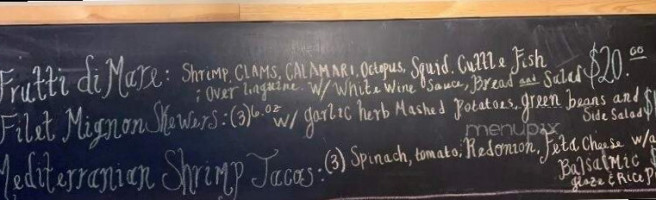 Frutti di Mare: Shrimp, CLAMS, CALAMARI, Octopus, Squid. Cuttle Fish $20.00
; over Linguine. W/ White Wine Sauce, Bread and Salad
Filet Mignon Skewers: (3) 6.oz w/ garlic herb Mashed Potatoes, green beans and $
Side Salad
menupix
Mediterranian Shrimp Tacos: (3) Spinach, tomato, Redonion, feta Cheese w/a
BalsaMic $
glaze & Rice P